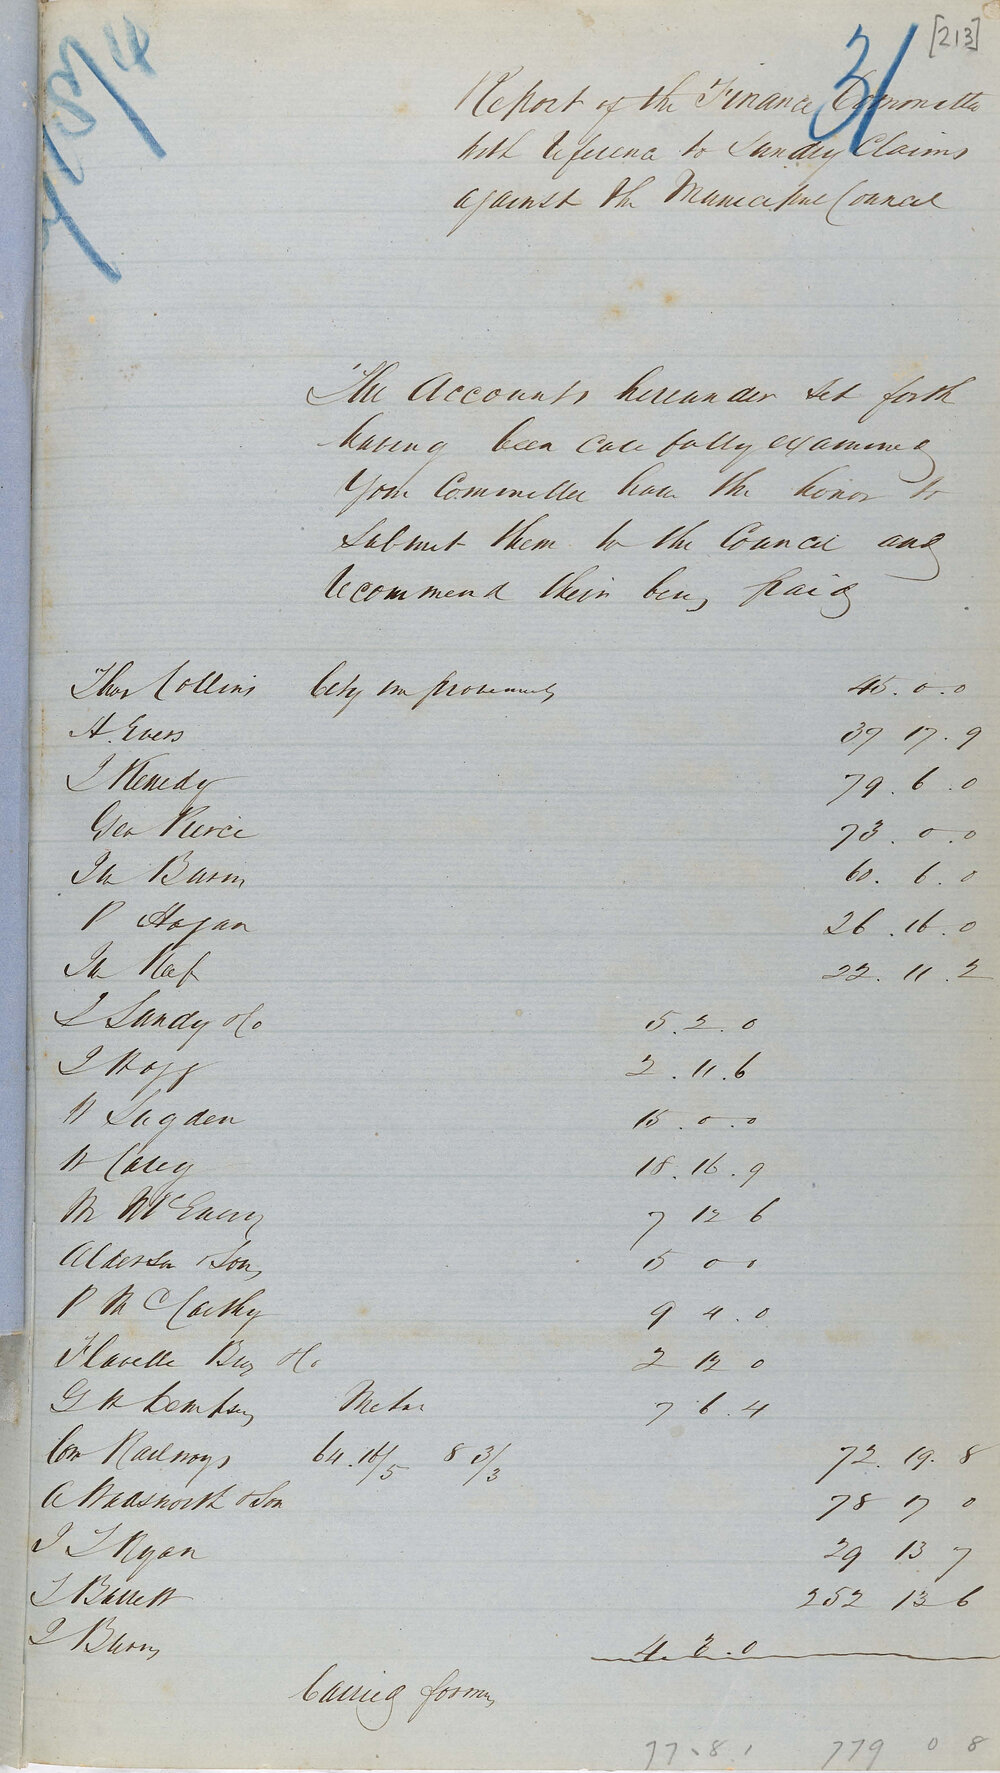 [213]
31
Report of the Finance Committee
with reference to Sundry Claims
against the Municipal Council
The Accounts hereunder set forth
having been carefully examined
Your Committee have the honor to
submit them to the Council and
recommend their being paid
Thos Collins City improvements 45.0.0
H. Evers 37 17.9
J Kenedy 79.6.0
Geo Pierce 73.0.0
Jn Burns 60.6.0
P Hogan 26.16.0
Jn 22.11.2
J Sandy & Co 5.2.0
J Hogg 2.11.6
W Sugden 15.0.0
W Casey 18.16.9
M McEvery 7 12 6
Alderson & Sons 15 0 0
P McCarthy 9 4.0
Flavelle Bros & Co 2 12 0
G H Dempsey Metal 7 6.4
Com Railways 64.16/5 8 3/3 72.19.8
A Wadsworth & Son 78 17 0
J T Ryan 29 13 7
T Barrett 252 13 6
J Burns 4 2.0
Carried forward
77.8.1 779 0 8